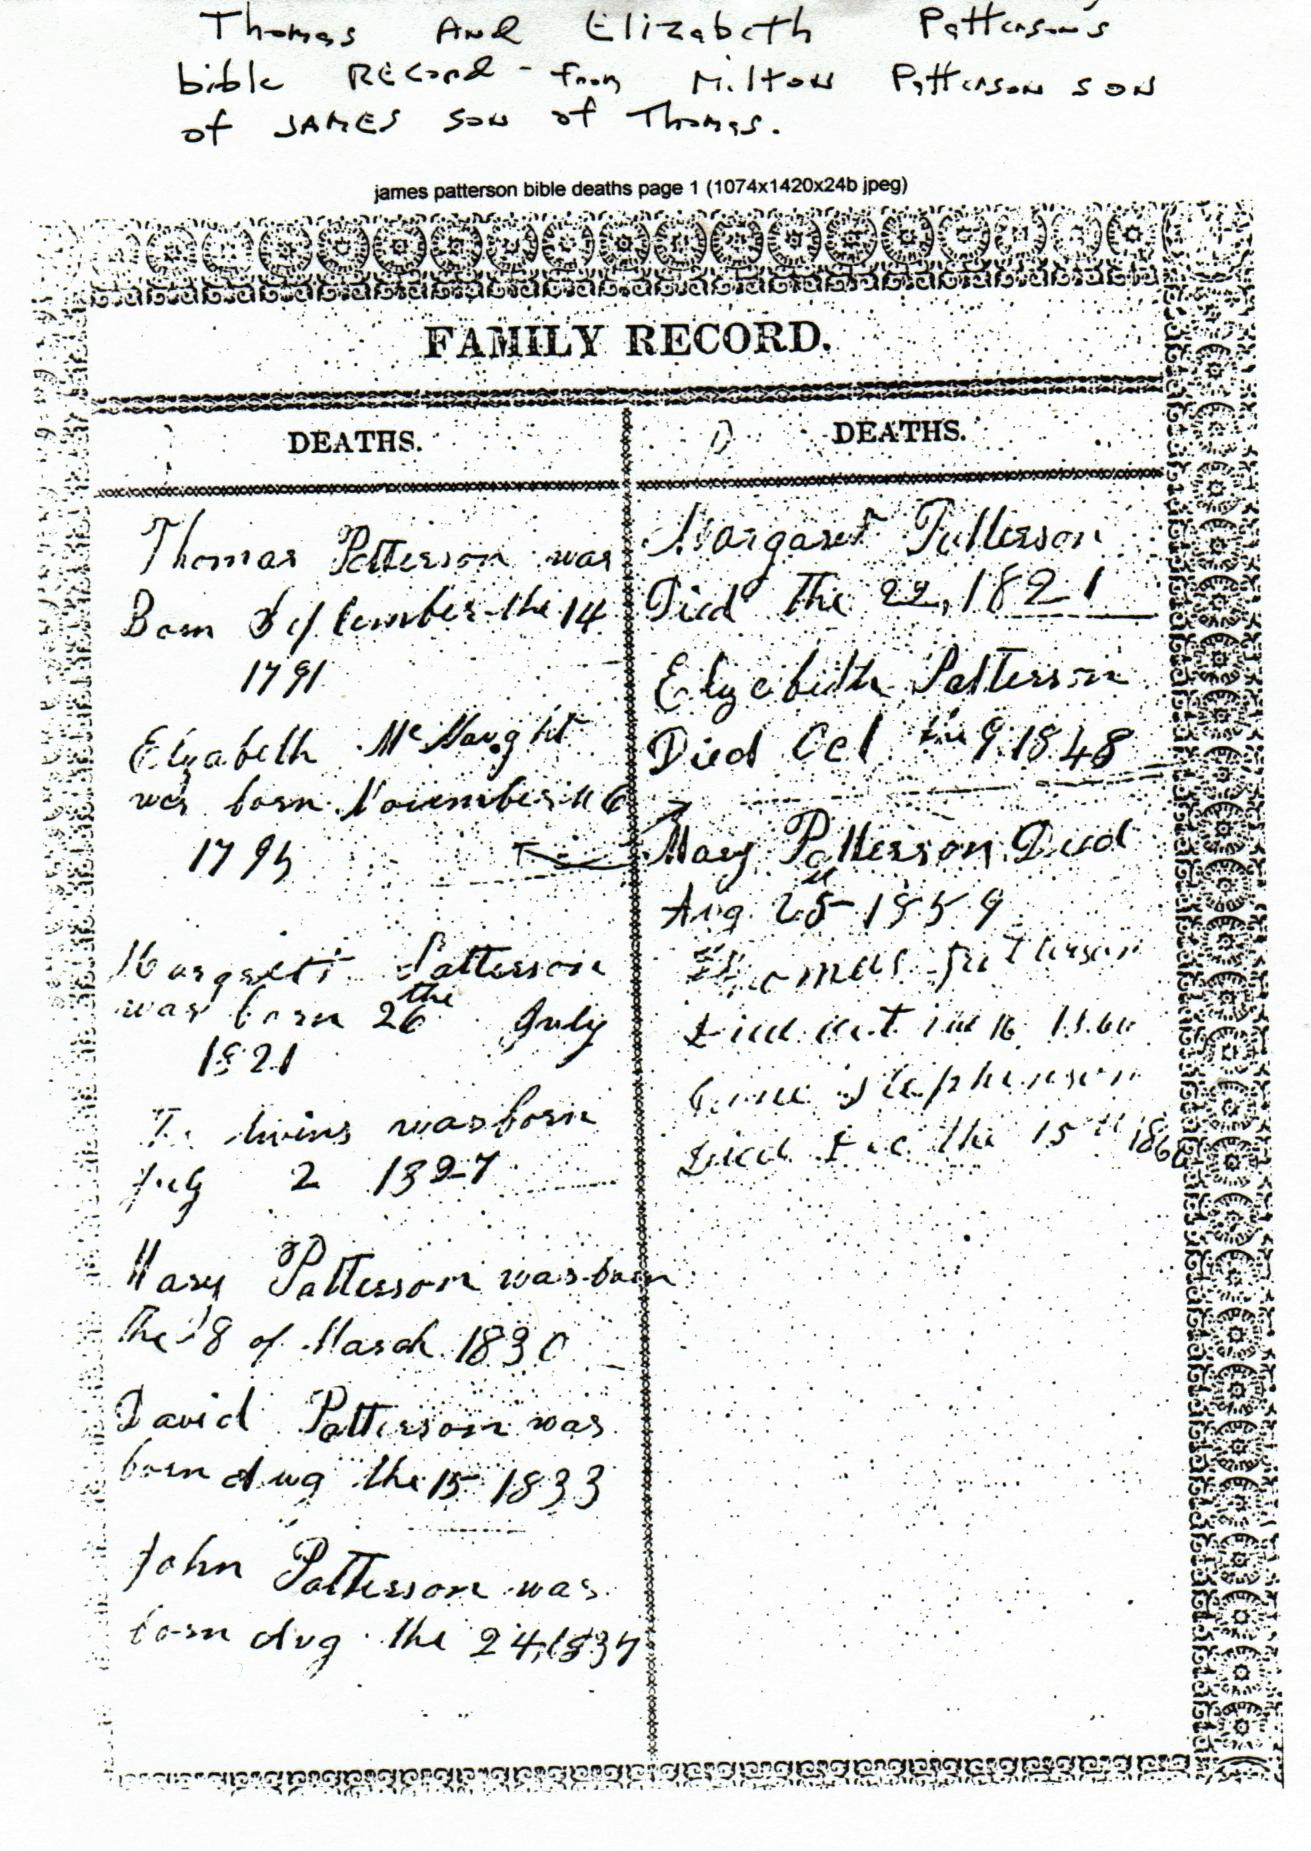 Thomas And Elizabeth Pattersons
bible RECord - from Milton Patterson SON
of JAMES son of Thomas.
james patterson bible deaths page 1 (1074x1420x24b jpeg)
FAMILY RECORD.
DEATHS.
Thomas Patterson was
Born September the 14
1791
Elyabeth McNaught
was born November
Margrett Patterson
was born 26 the July
1821
twins was born
July 2 1827
Mary Patterson was born
the 18 of March 1830
David Patterson was
born Aug the 15 1833
John Patterson was
born Aug the 24, 1837
DEATHS.
Margaret Patterson
Died The 22, 1821
Elyzebeth Patterson
Died Oct the 9 1848
Mary Patterson Died
Aug 25 1859
Thomas Patterson
Died 16
Stephenson
Died the 15th 1860